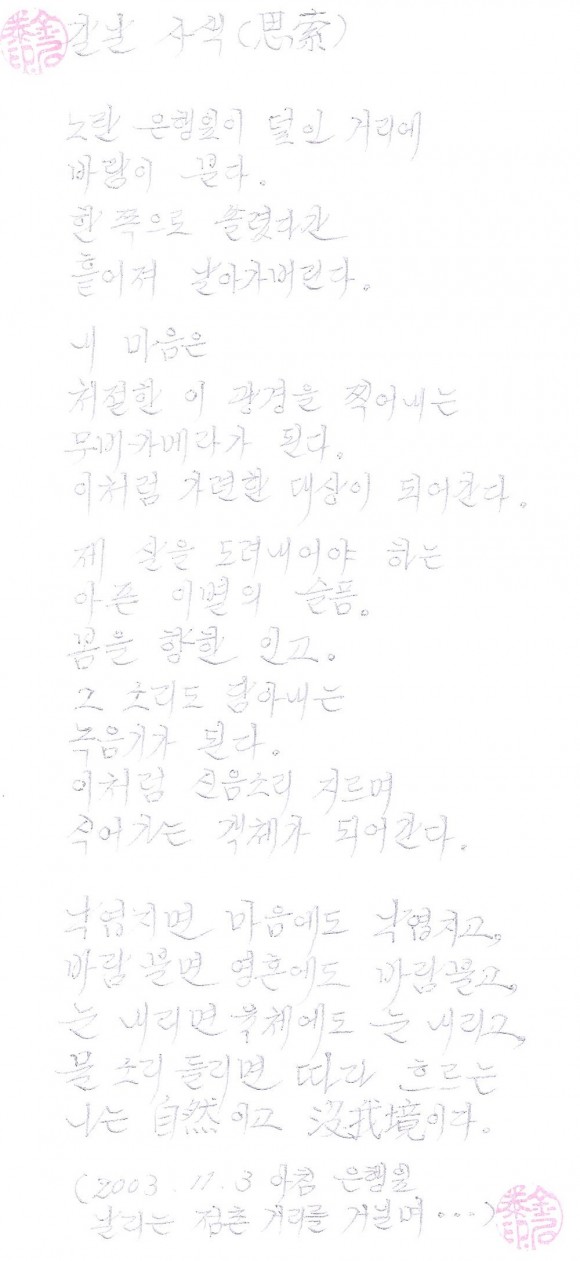 갈날 사색(思索)
노란 은행잎이 덮인 거리에
바람이 분다.
한 쪽으로 쏠렸다간
흩어져 날아가버린다.
내 마음은
처절한 이 광경을 찍어내는
무비카메라가 된다.
이처럼 가련한 대상이 되어간다.
제 살을 도려내어야 하는
아픈 이별의 슬픔.
봄을 향한 인고.
그 소리도 담아내는
녹음기가 된다.
이처럼 신음소리 지르며
죽어가는 객체가 되어간다.
낙엽지면 마음에도 낙엽지고,
바람불면 영혼에도 바람불고,
눈 내리면 육체에도 눈 내리고,
물 소리 들리면 따라 흐르는
나는 自然이고 沒我境이다.
(2003.11.3 아침 은행잎
날리는 점촌 거리를 거닐며····)